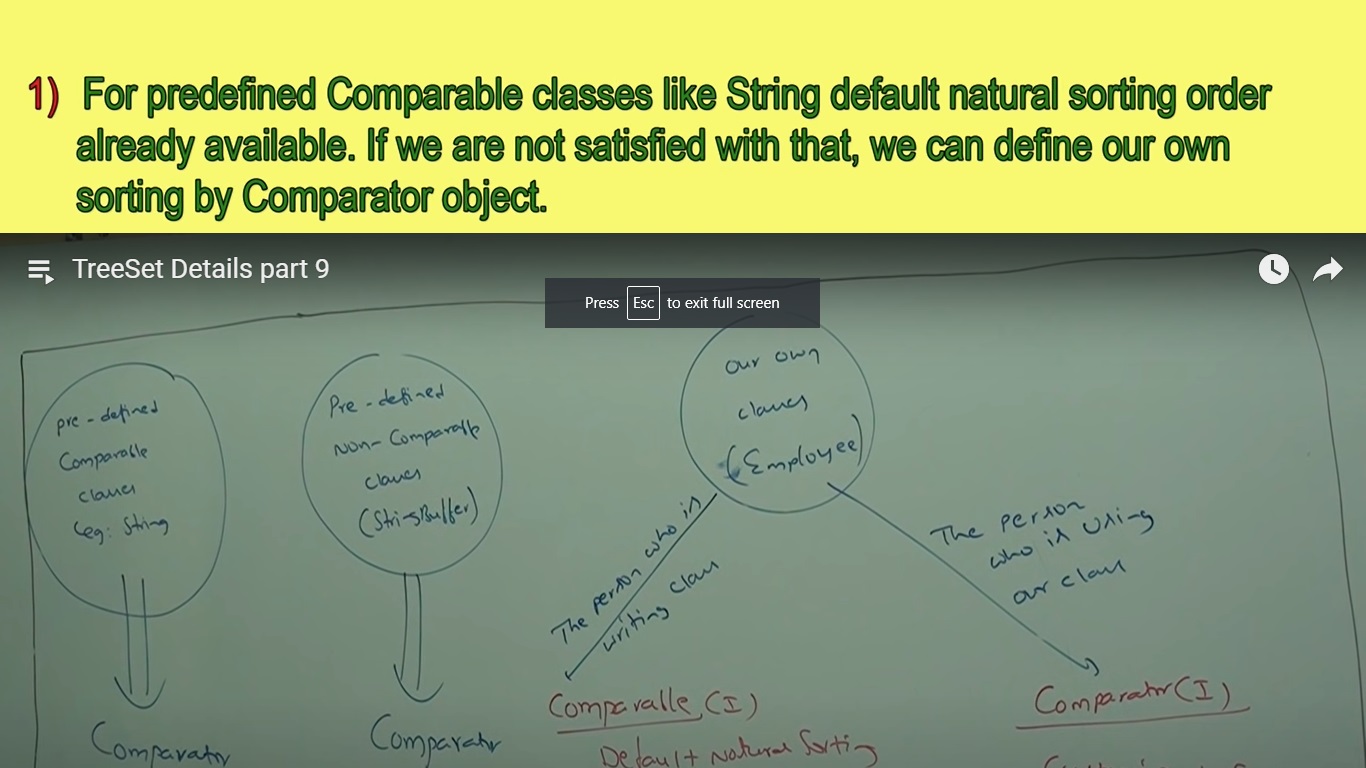 1) For predefined Comparable classes like String default natural sorting order
already available. If we are not satisfied with that, we can define our own
sorting by Comparator object.
TreeSet Details part 9
Press Esc to exit full screen
pre-defined
Comparable
classes
(eg: String
Comparator
Pre-defined
Non-Comparable
classes
(StringBuffer)
Comparator
our own
classes
(Employee)
The person who is
writing class
Comparable (I)
Default Natural Sorting
The person
who is using
our class
Comparator (I)